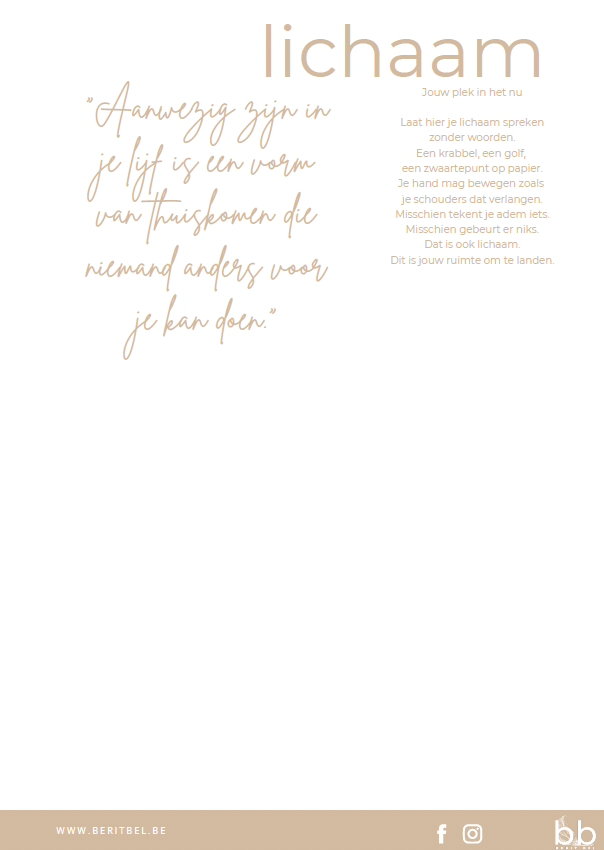 lichaam
"Aanwezig zijn in
je lijf is een vorm
van thuiskomen die
niemand anders voor
je kan doen."
Jouw plek in het nu
Laat hier je lichaam spreken
zonder woorden.
Een krabbel, een golf,
een zwaartepunt op papier.
Je hand mag bewegen zoals
je schouders dat verlangen.
Misschien tekent je adem iets.
Misschien gebeurt er niks.
Dat is ook lichaam.
Dit is jouw ruimte om te landen.
WWW.BERITBEL.BE
bb
BERIT BEL